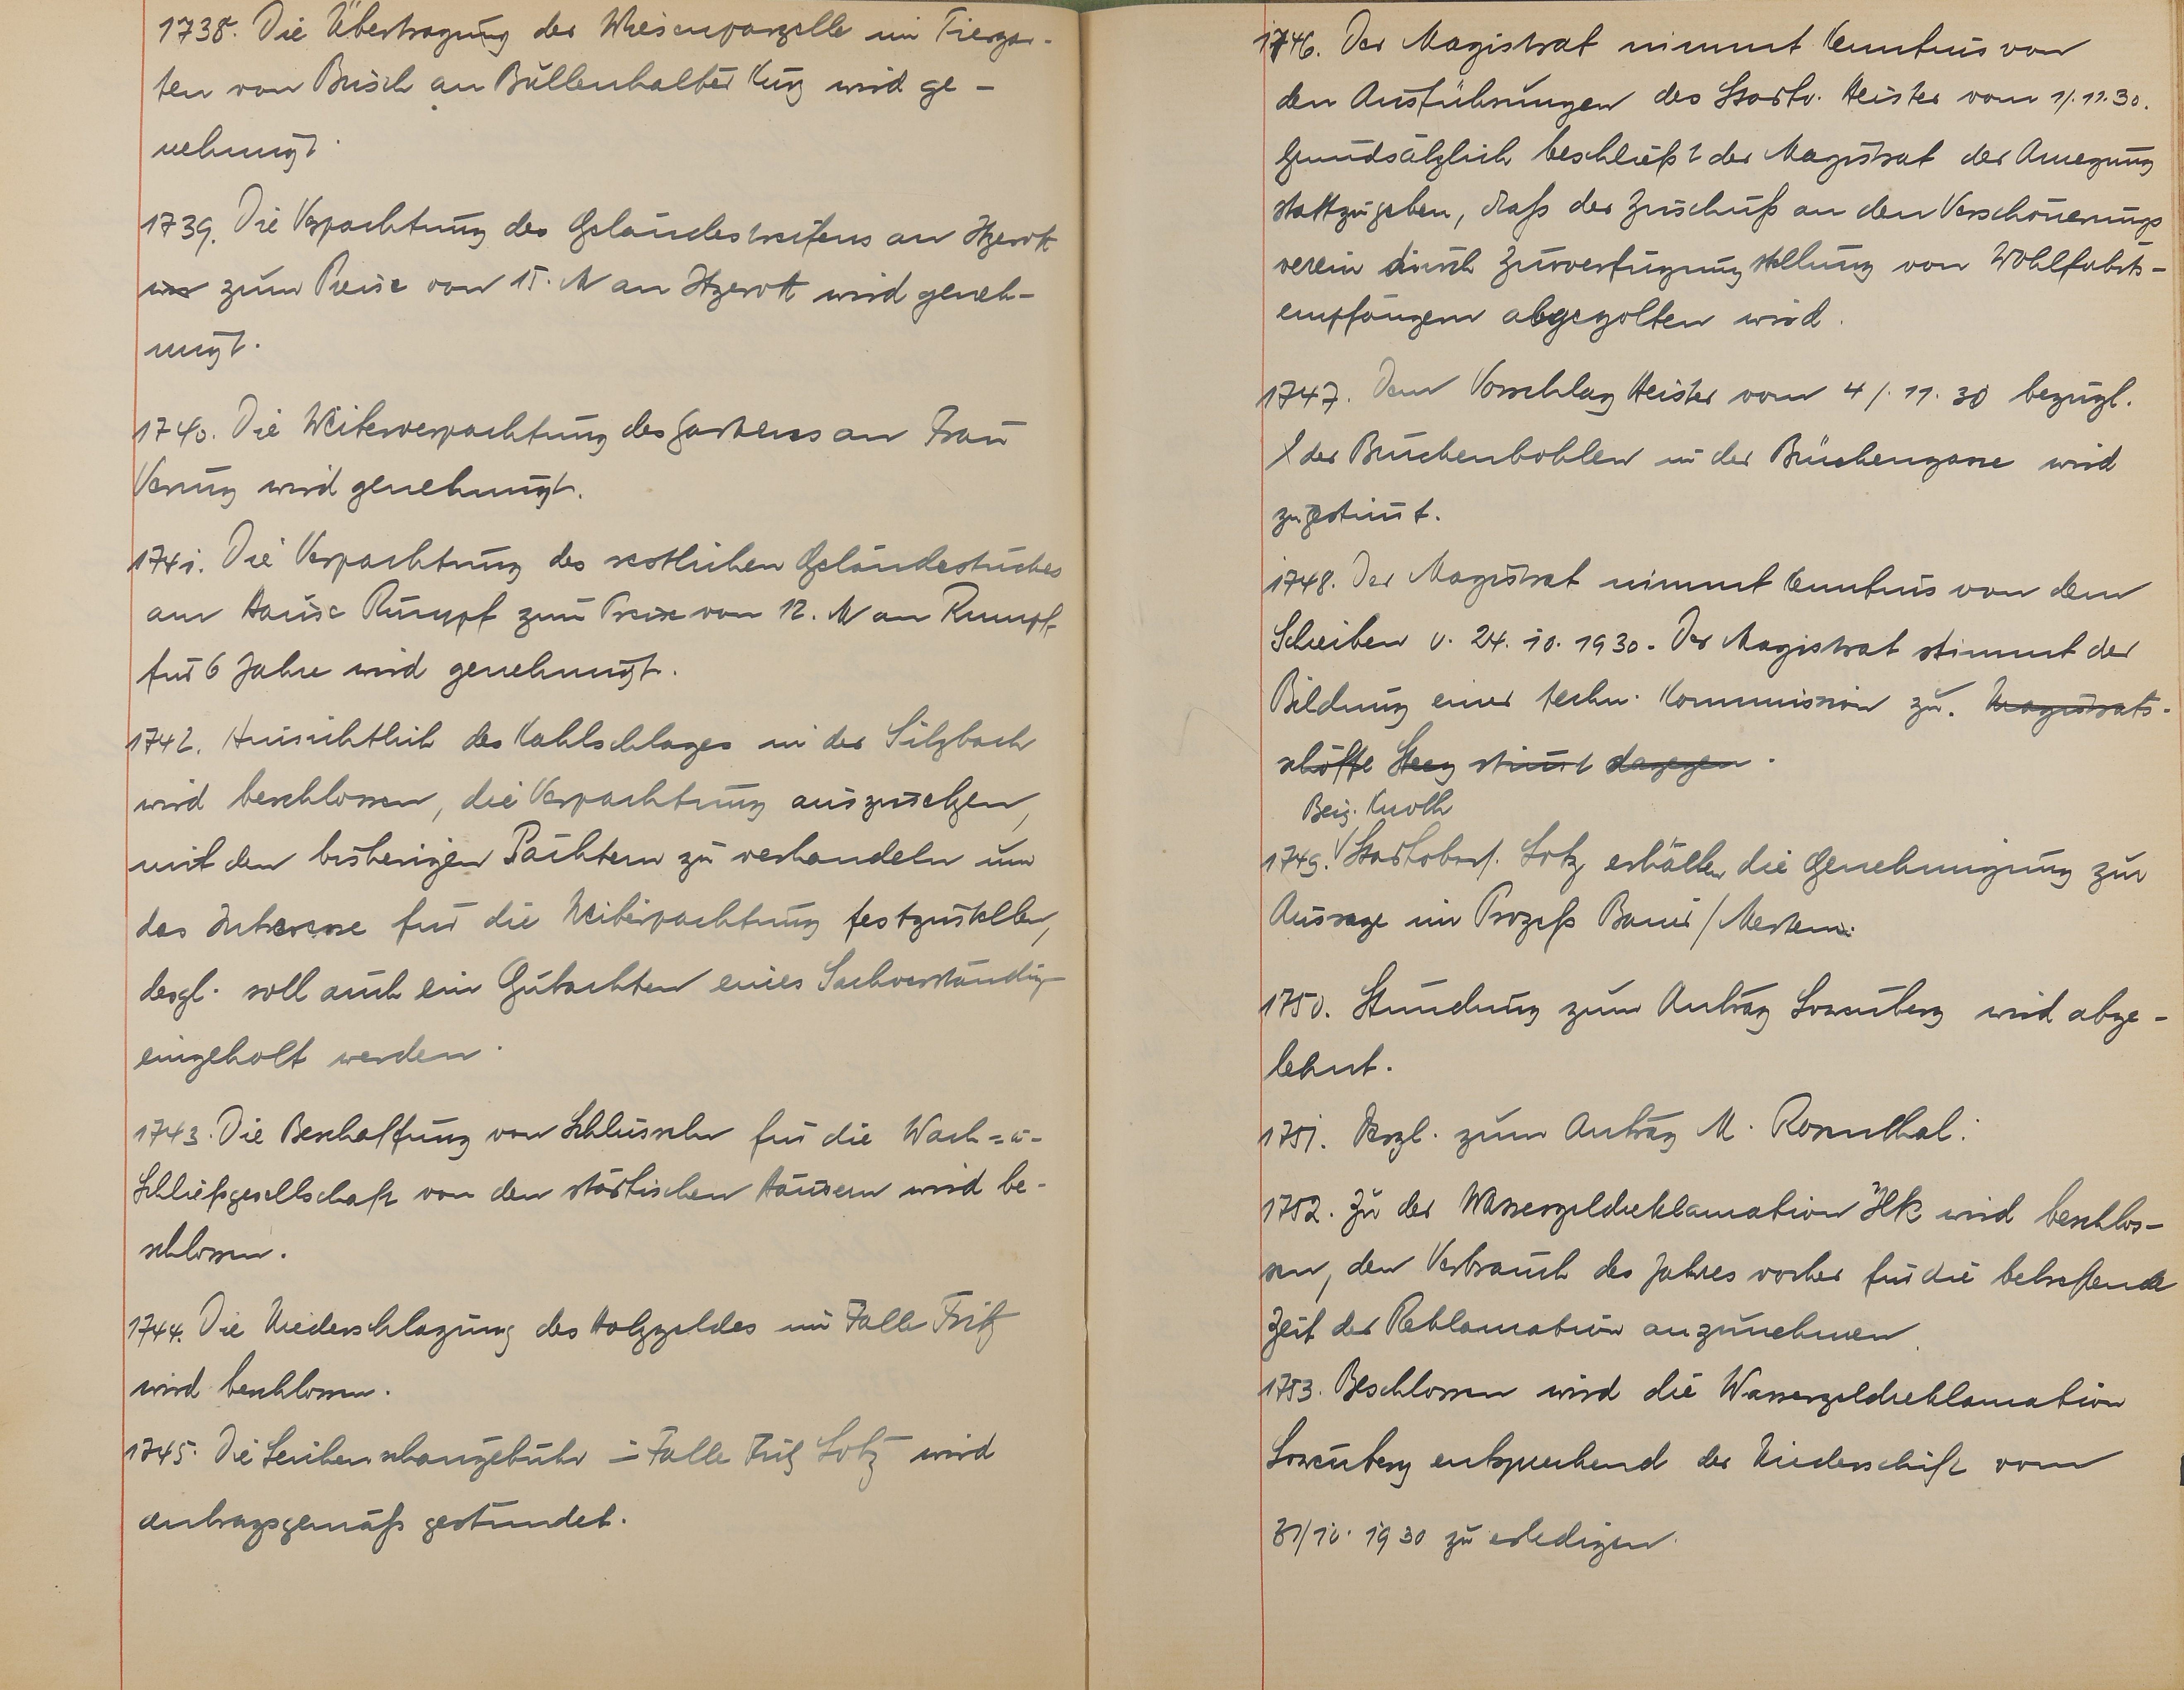 1738. Die Übertragung der Wiesenparzelle im Tiergar-
ten von Busch an Bullenhalter Kurz wird ge-
nehmigt.
1739. Die Verpachtung des Geländestreifens an Itzerott
zum Preise von 15. M an Itzerott wird geneh-
migt.
1740. Die Weiterverpachtung des Gartens an Frau
wird genehmigt.
1741. Die Verpachtung des restlichen Geländestückes
am Hause Rumpf zum Preise von 12. M an Rumpf
für 6 Jahre wird genehmigt.
1742. Hinsichtlich des Kahlschlages in der Silzbach
wird beschlossen, die Verpachtung auszusetzen,
mit den bisherigen Pächtern zu verhandeln um
das Interesse für die Weiterpachtung festzustellen,
desgl. soll auch ein Gutachten eines Sachverständig
eingeholt werden.
1743. Die Beschaffung von Schlüsseln für die Wach- u-
Schließgesellschaft von den städtischen Häusern wird be-
schlossen.
1744. Die Niederschlagung des Holzgeldes im Falle Fritz
wird beschlossen.
1745. Die Leichenschaugebühr i. Falle Fritz Lotz wird
antragsgemäß gestundet.
1746. Der Magistrat nimmt Kenntnis von
den Ausführungen des Stadtv. Heister vom 1/.11.30.
Grundsätzlich beschließt der Magistrat der Anregung
stattzugeben, daß der Zuschuß an den Verschönerungs
verein durch Zurverfügungstellung von Wohlfahrts-
empfängern abgegolten wird.
1747. Dem Vorschlag Heister vom 4/.11.30 bezügl.
der Buchenbohlen in der Brückengasse wird
zugestimt.
1748. Der Magistrat nimmt Kenntnis von dem
Schreiben v. 24.10.1930. Der Magistrat stimmt der
Bildung einer techn. Kommission zu. Magistrats-
schöffe Steeg stimt dagegen.
Beig. Knoth
1749. Stadtobers. Lotz erhalten die Genehmigung zur
Aussage im Prozeß Bauer/Mertens.
1750. Stundung zum Antrag Löwenberg wird abge-
lehnt.
1751. Desgl. zum Antrag M. Rosenthal.
1752. Zu der Wassergeldreklamation Ilk wird beschlos-
sen, den Verbrauch des Jahres vorher für die betreffende
Zeit der Reklamation anzunehmen.
1753. Beschlossen wird die Wassergeldreklamation
Löwenberg entsprechend der Niederschrift vom
31/10.1930 zu erledigen.